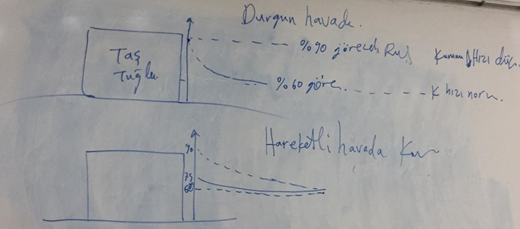 Durgun havada.
Taş
Tuğla
%90 göreceli Rus
Kuruma Hızı düş.
%60 göre.
K hızı norm.
Hareketli havada Kur
90
75
60